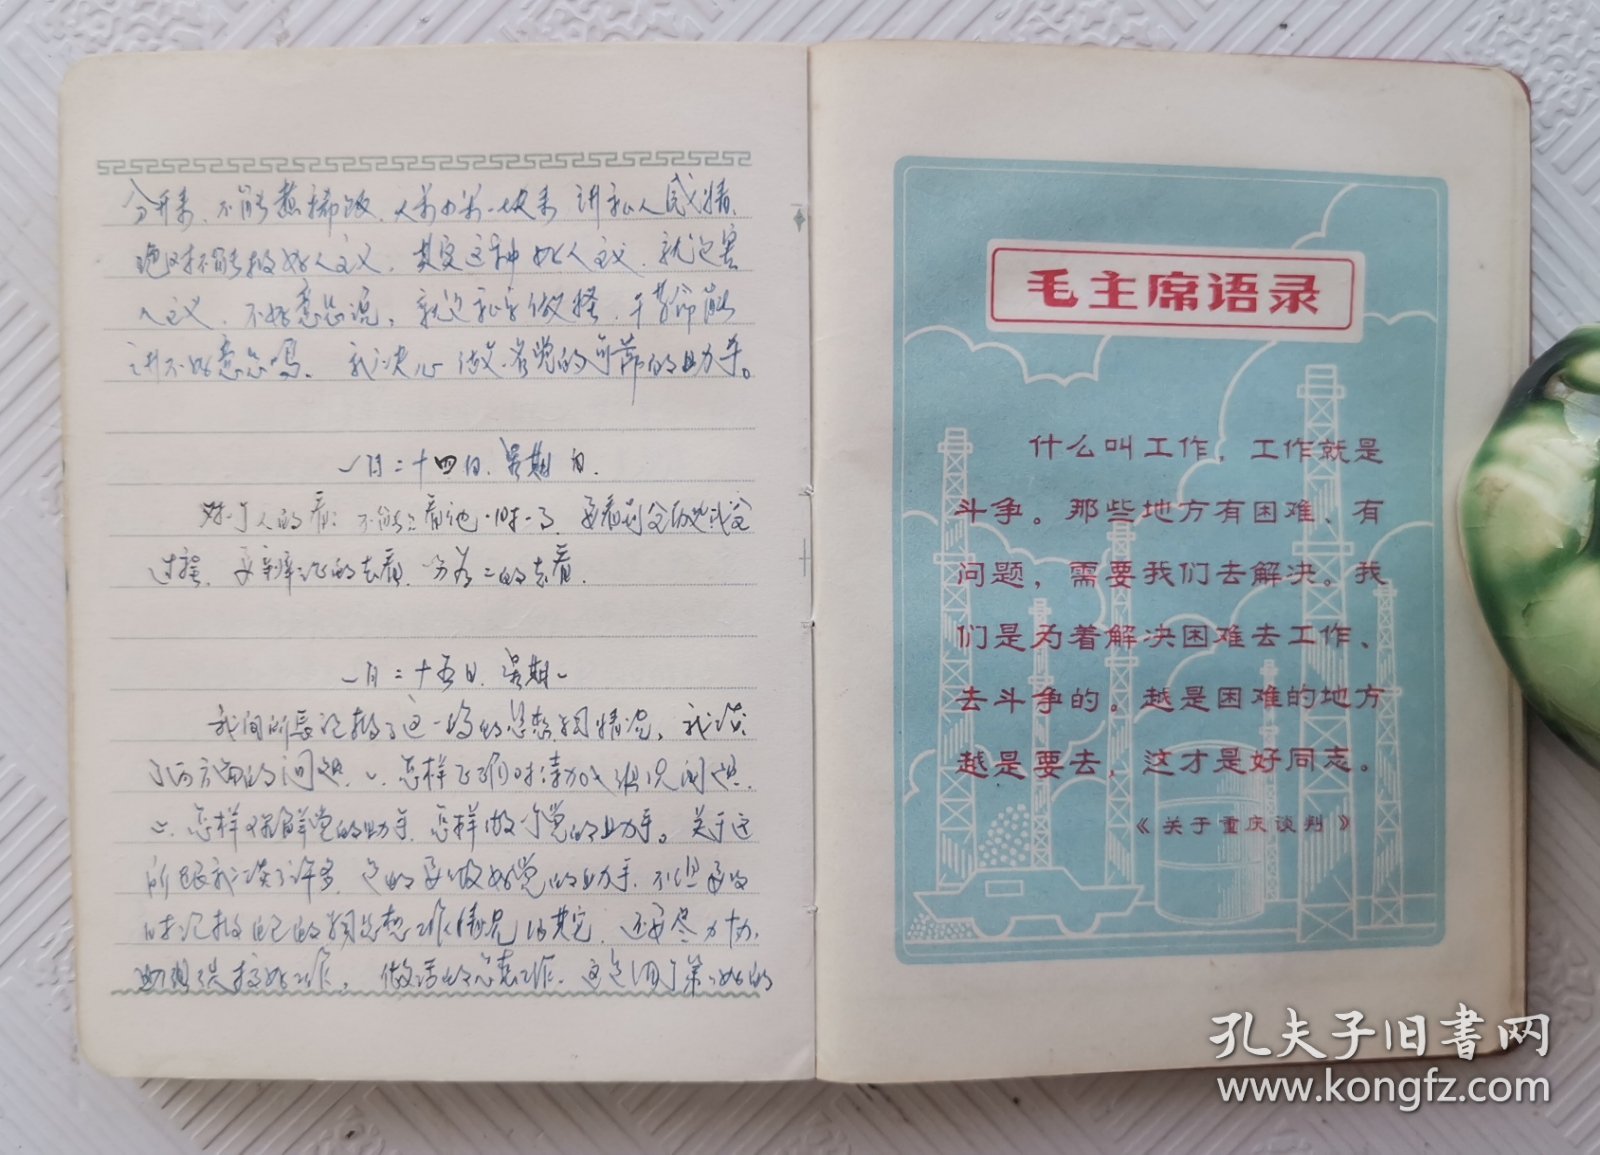 分开来、不能煮稀饭、
讲私人感情、
绝对不能搞好人主义、其实这种好人主义、就是害
人主义、不好意思说、就是私字做怪、干革命能
讲不好意思吗、我决心做一名党的可靠的助手。
一月二十四日、星期日、
对一个人的看、不能看他一时一事、要看到全部历史或全
过程、要辩证的去看、分为二的去看、
一月二十五日、星期一
我向所长汇报了这一
的思想情况、我谈
了两方面的问题、一、怎样
组织问题、
二、怎样理解党的助手、怎样做个党的助手。关于这
所长跟我谈了许多、
要做好党的助手、不但要及
时汇报自己的
思想工作情况
、还要尽力协
助
搞好工作、做
工作、这
毛主席语录
什么叫工作，工作就是
斗争。那些地方有困难、有
问题，需要我们去解决。我
们是为着解决困难去工作、
去斗争的。越是困难的地方
越是要去，这才是好同志。
《关于重庆谈判》
孔夫子旧书网
www.kongfz.com